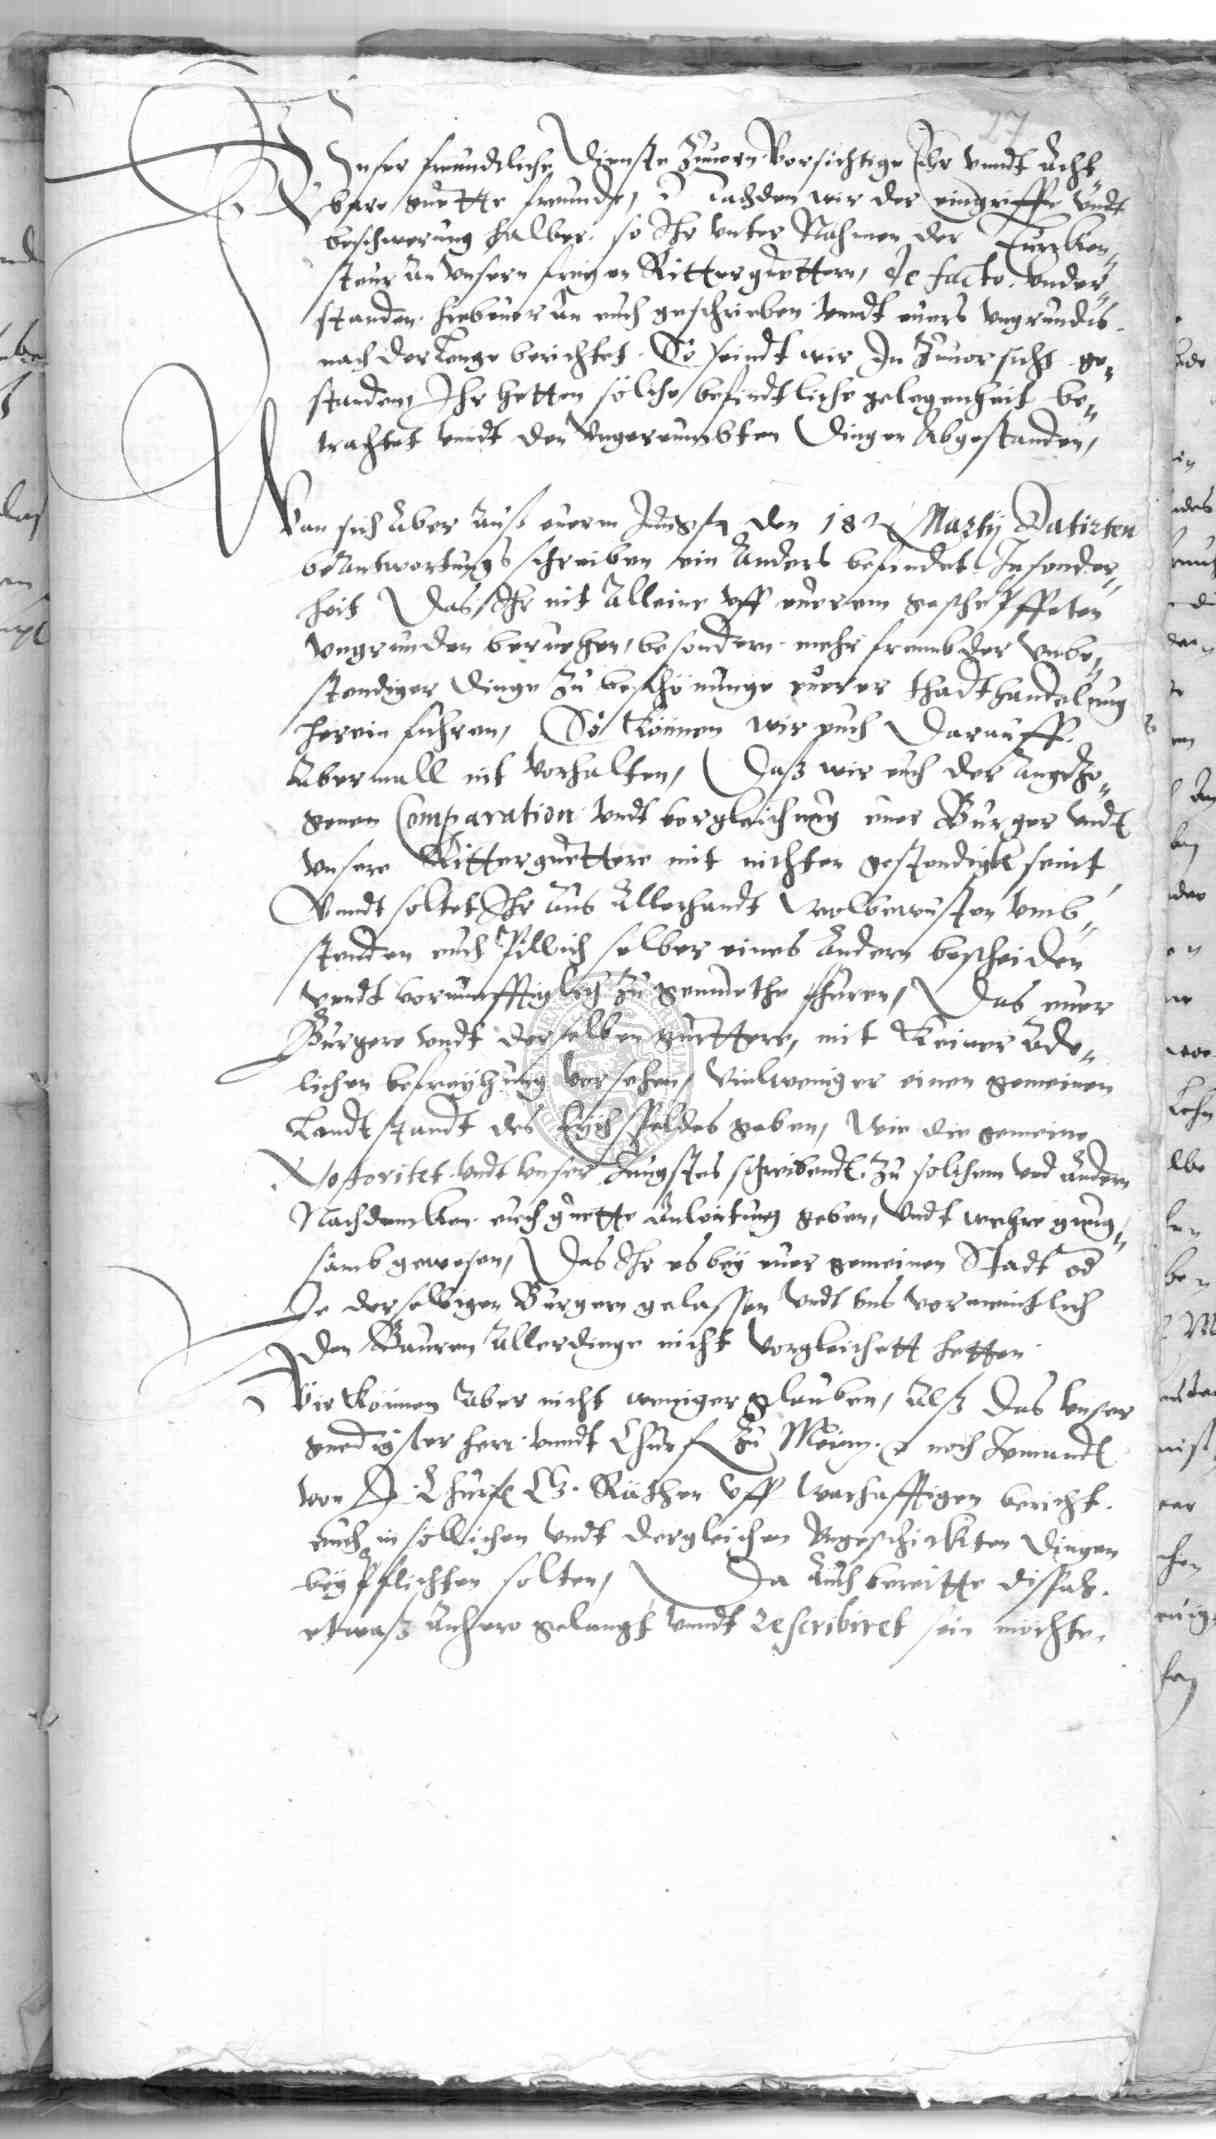 27
Unser freundtliche Dienste zuuorn Vorsichtige Ehr vnndt Acht„
bare guette freunde, Nachdem wir der eingriffe vndt
beschwerung halber so Ihr vnter Nahmen der Turcken„
steur an vnsern freyen Ritterguettern, de facto vnder„
standen hiebeuor an euch geschrieben vnndt euers vngrundts
nach der Lenge berichtet. So seindt wir In Zuuorsicht ge„
standen, Ihr hetten solche befindtliche gelegenheit be„
trachtet vnndt den Vngereumbten Dingen Abgestanden,
Wan sich Aber Auß euerm Jungst den 18 Martij Datirten
beAntwortungs schreiben ein Anders befindet Insonder„
heit Das Ihr nit Alleine vff euerem geschepfften
vngrunden beruehen, besondern mehr frembder vnbe„
stendiger Dinge zu beschönunge euerer thadthandelung
herein fuhren, So können wir euch Darauff
Abermall nit Vorhalten, Daß wir euch der Angezo„
genen Comparation vndt vorgleichung euer Burger vndt
vnsere Ritterguettere mit nichten gestendigk seint
Vnndt soltet Ihr Aus Allerhandt wolbewusten vmb„
stenden euch Pillich selber eines Andern bescheiden
vnndt vornunfftiglich zu gemuethe fhuren, Das euer
Burgere vndt derselben guettere, mit Keiner Ade„
lichen befreyhung vorsehen, Vielweniger einen gemeinen
Landtstandt des Eychsfeldes geben, Wie die gemeine
Notoritet vndt vnser Jungstes schreibendt zu solchem vnd Andern
Nachdencken euch guette Anleitung geben, Vndt mehre gnug„
samb gewesen, Das Ihr es bey euer gemeinen Stadt od
Je derselbigen Burgern gelassen vndt vns vormeintlich
Den Bauren Allerdinge nicht Vorgleichett hetten
Wir können Aber nicht weniger glauben, Alß Das vnser
gnedigster herr vnndt Churf zu Meintz noch Jemandt
von Churf G. Räthen vff warhafftigen bericht
euch in sollichen vndt dergleichen Vngeschickten Dingen
beyPflichten solten, Da Auch bereitte dißfals
etwaß Anhero gelangt vnndt rescribiret sein möchte,